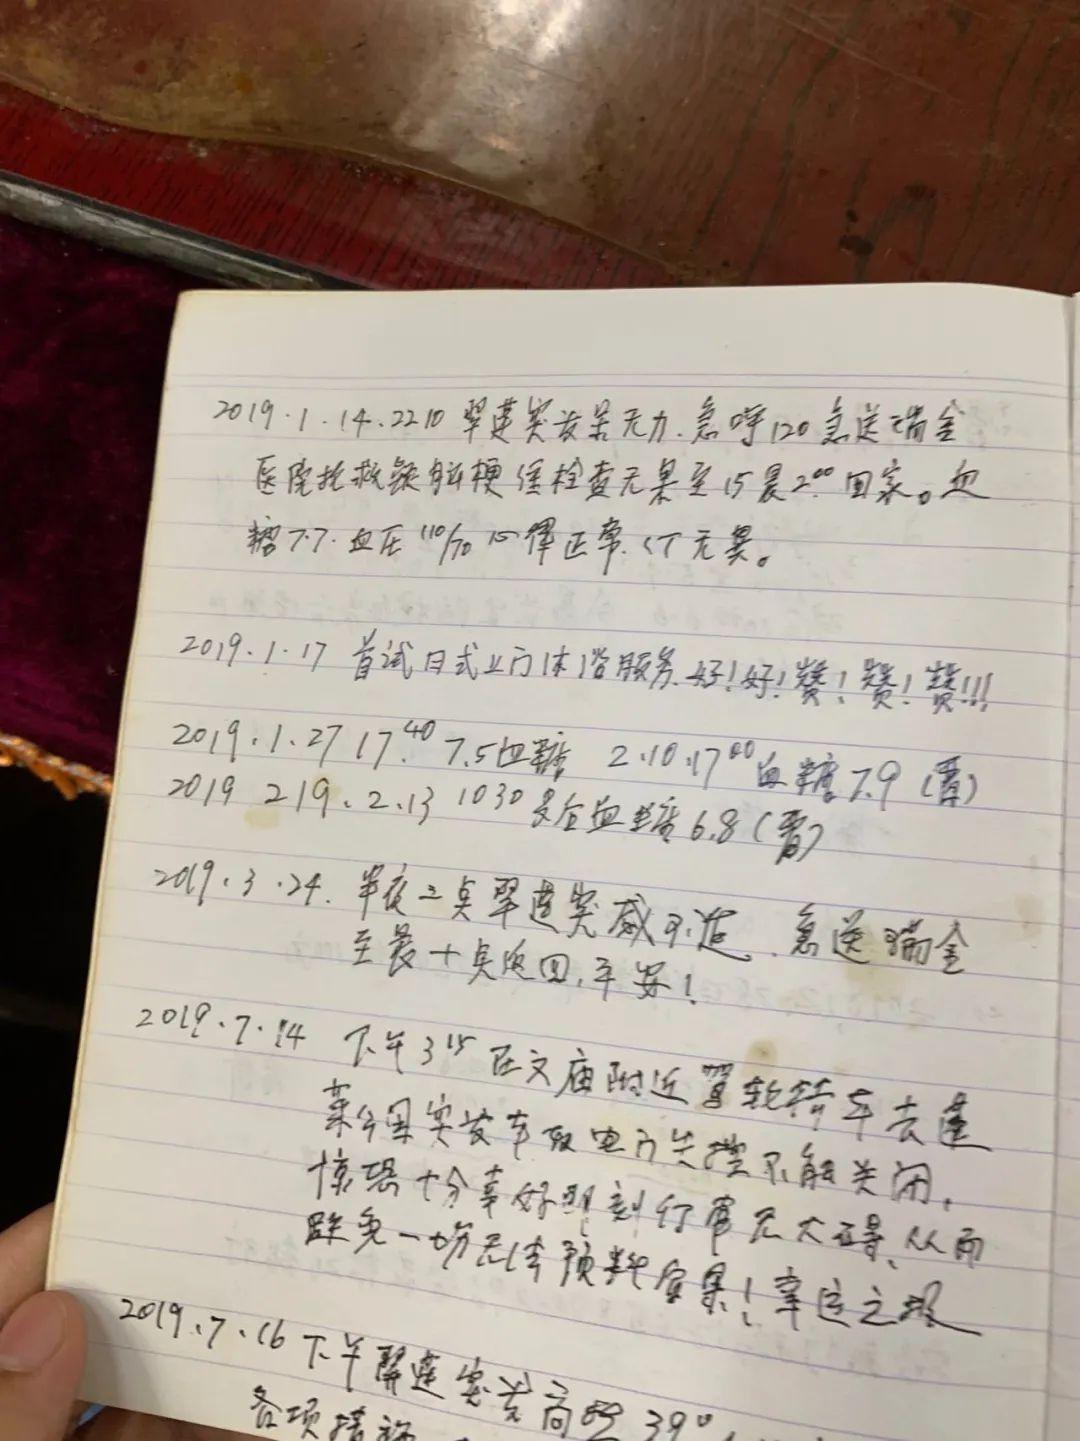 2019.1.14.2210 翠莲突发呆无力.急呼120急送瑞金
医院抢救疑脑梗 经检查无果至15晨2⁰⁰回家。血
糖7.7.血压110/70 心律正常.CT无异。
2019.1.17 首试日式上门沐浴服务.好!好!赞!赞!赞!!!
2019.1.27 17.⁴⁰ 7.5血糖 2.10.17⁰⁰血糖7.9(胃)
2019 219.2.13 1030 血糖6.8(胃)
2019.3.24.半夜二点翠莲突感不适.急送瑞金
至晨十点返回.平安!
2019.7.14 下午3¹⁵在文庙附近驾轮椅车去蓬
莱公园突发车 电门失控不能关闭,
惊恐十分幸好即刻行常无大碍,从而
避免一场无法预料后果!幸运之极
2019.7.16下午翠莲突发高烧39°,
各项措施